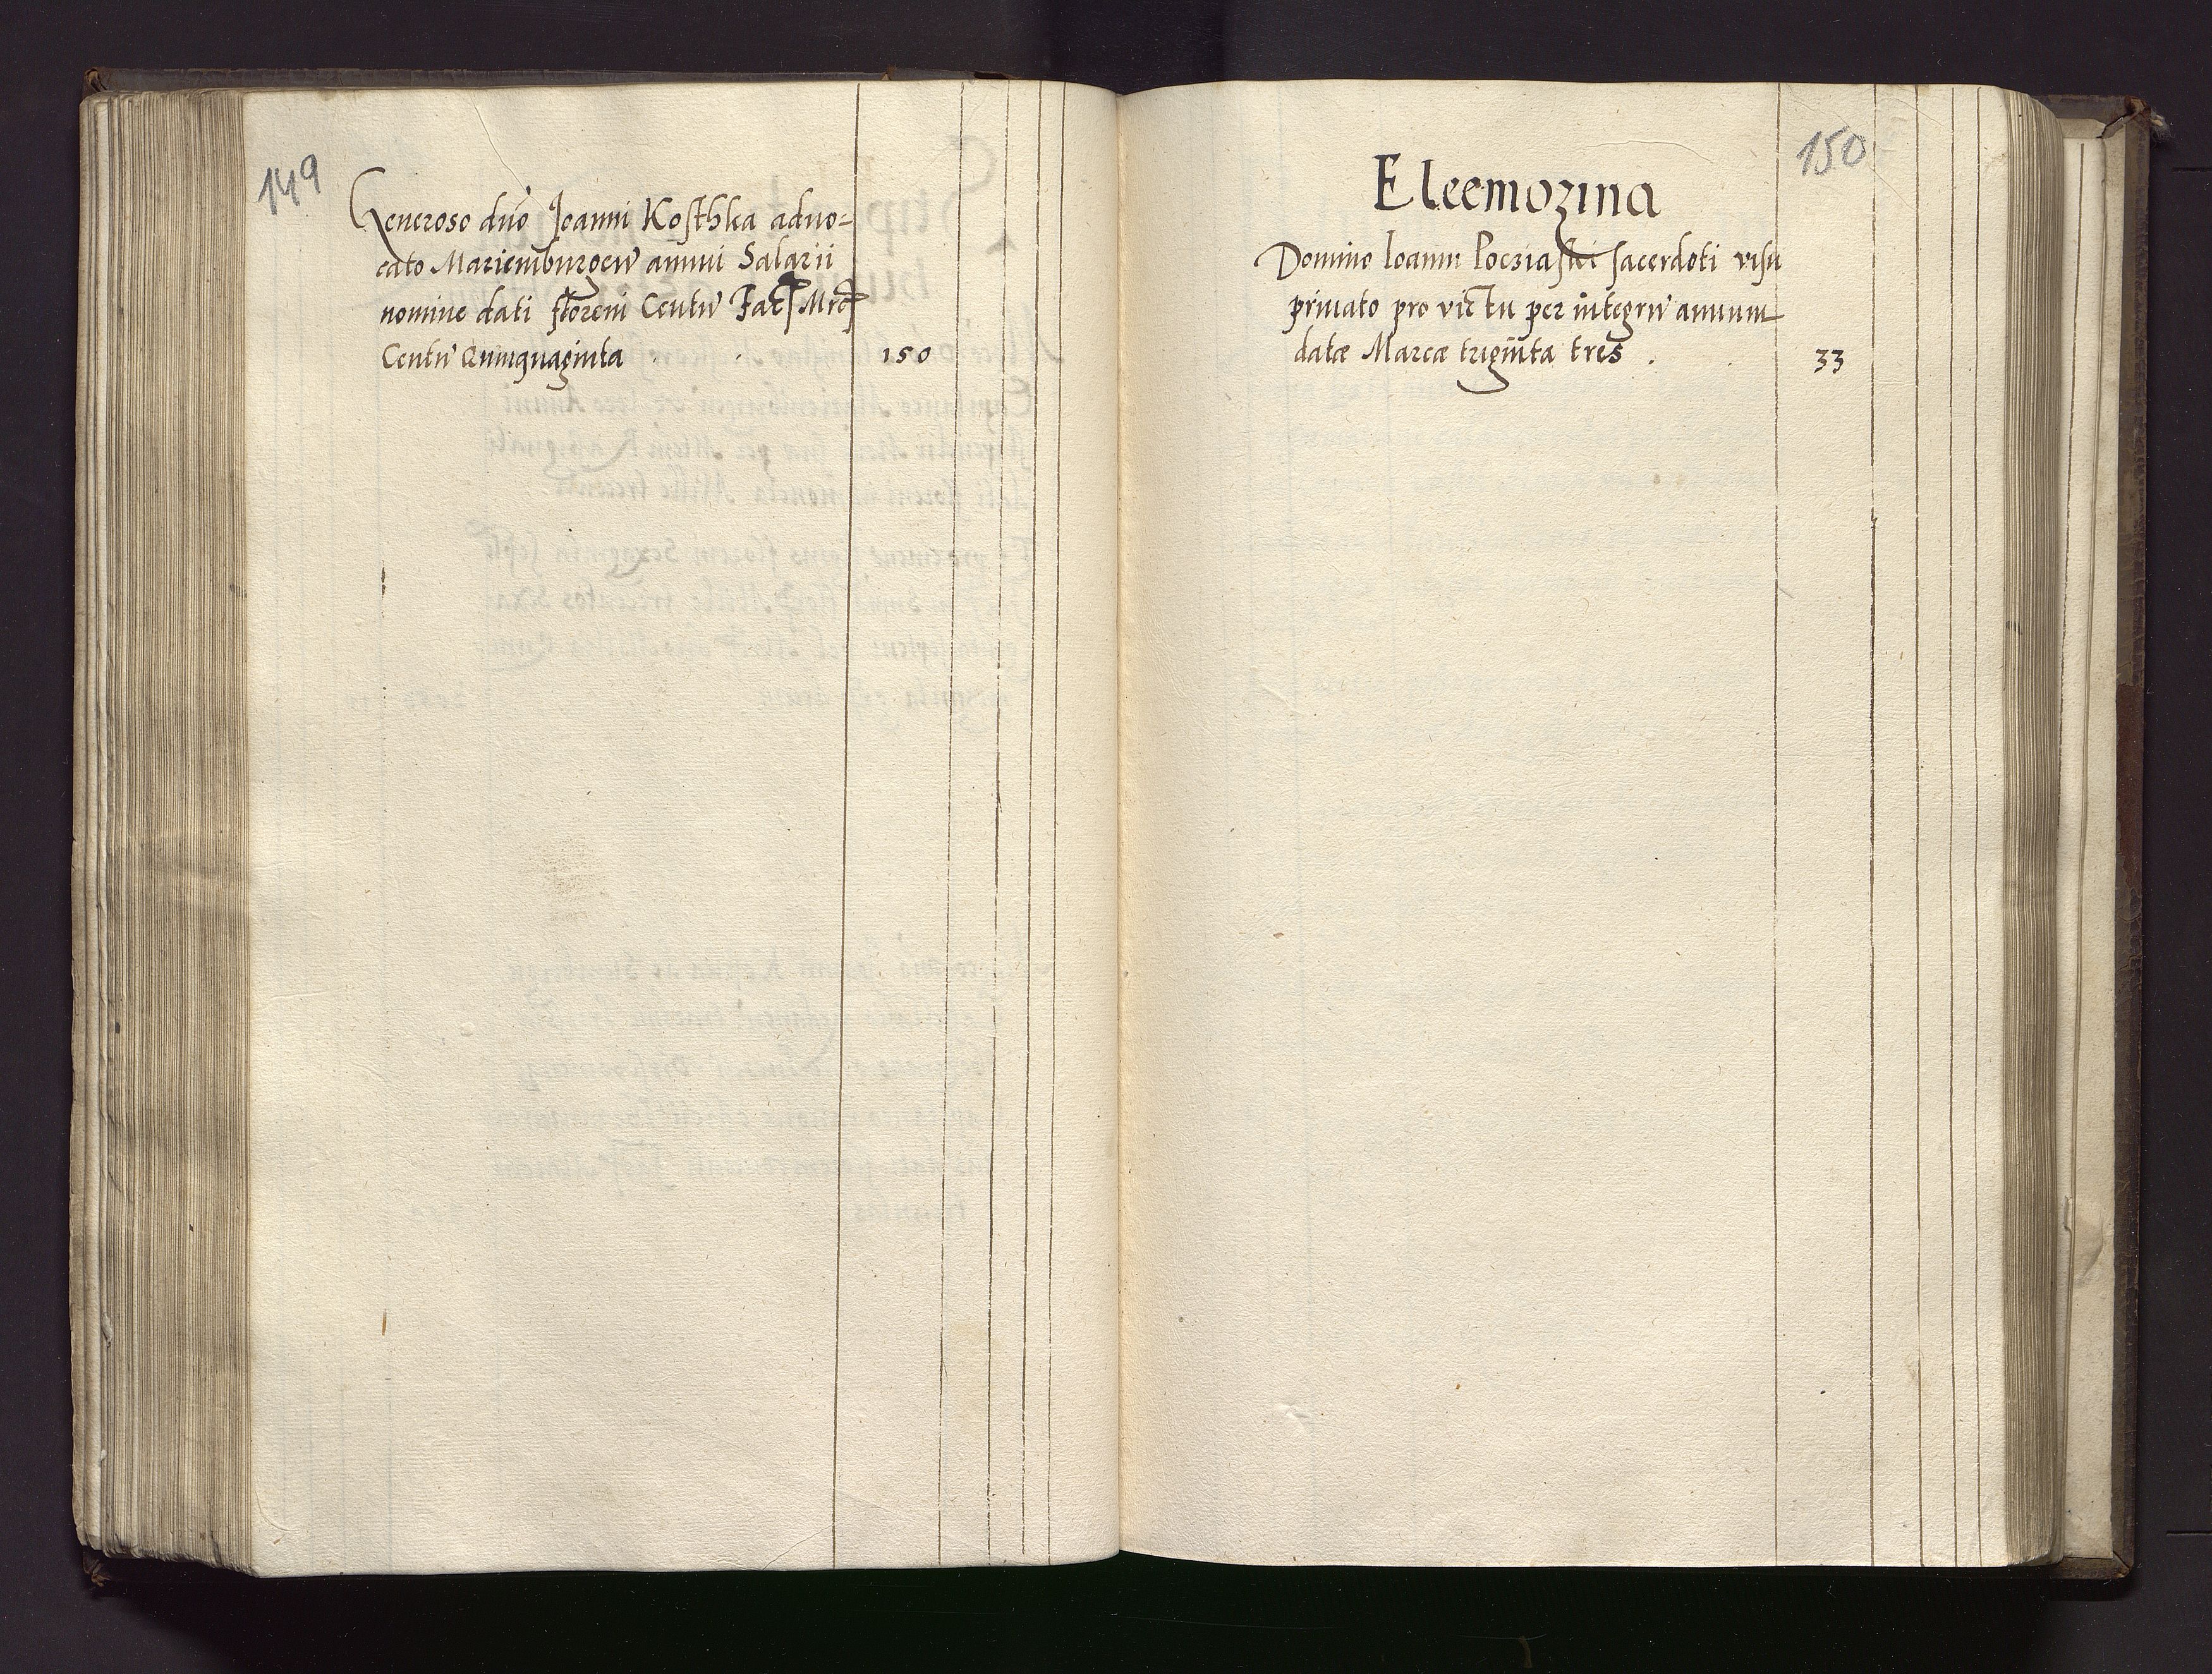 149
Generoso dno Joanni Kosthka aduo=
cato Mariemburgen annui Salarii
nomine dati floreni Centu Fac Mrc
Centu Quinquaginta 150
150
Eleemozina
Domino Ioanni Poeziaski sacerdoti visu
priuato pro victu per integru annum
datæ Marcæ triginta tres . 33